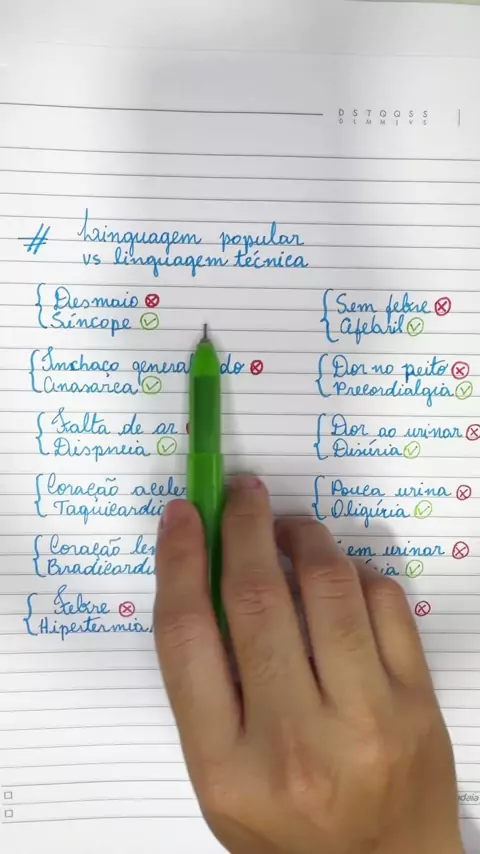 D S T Q Q S S
D L M M J V S
# Linguagem popular
vs linguagem técnica
Desmaio
Síncope
Inchaço general do
Anasarca
Falta de ar
Dispneia
Coração aceler
Taquicardi
Coração len
Bradicardi
Febre
Hipertermia
Sem febre
Afebril
Dor no peito
Precordialgia
Dor ao urinar
Disúria
Pouca urina
Oligúria
em urinar